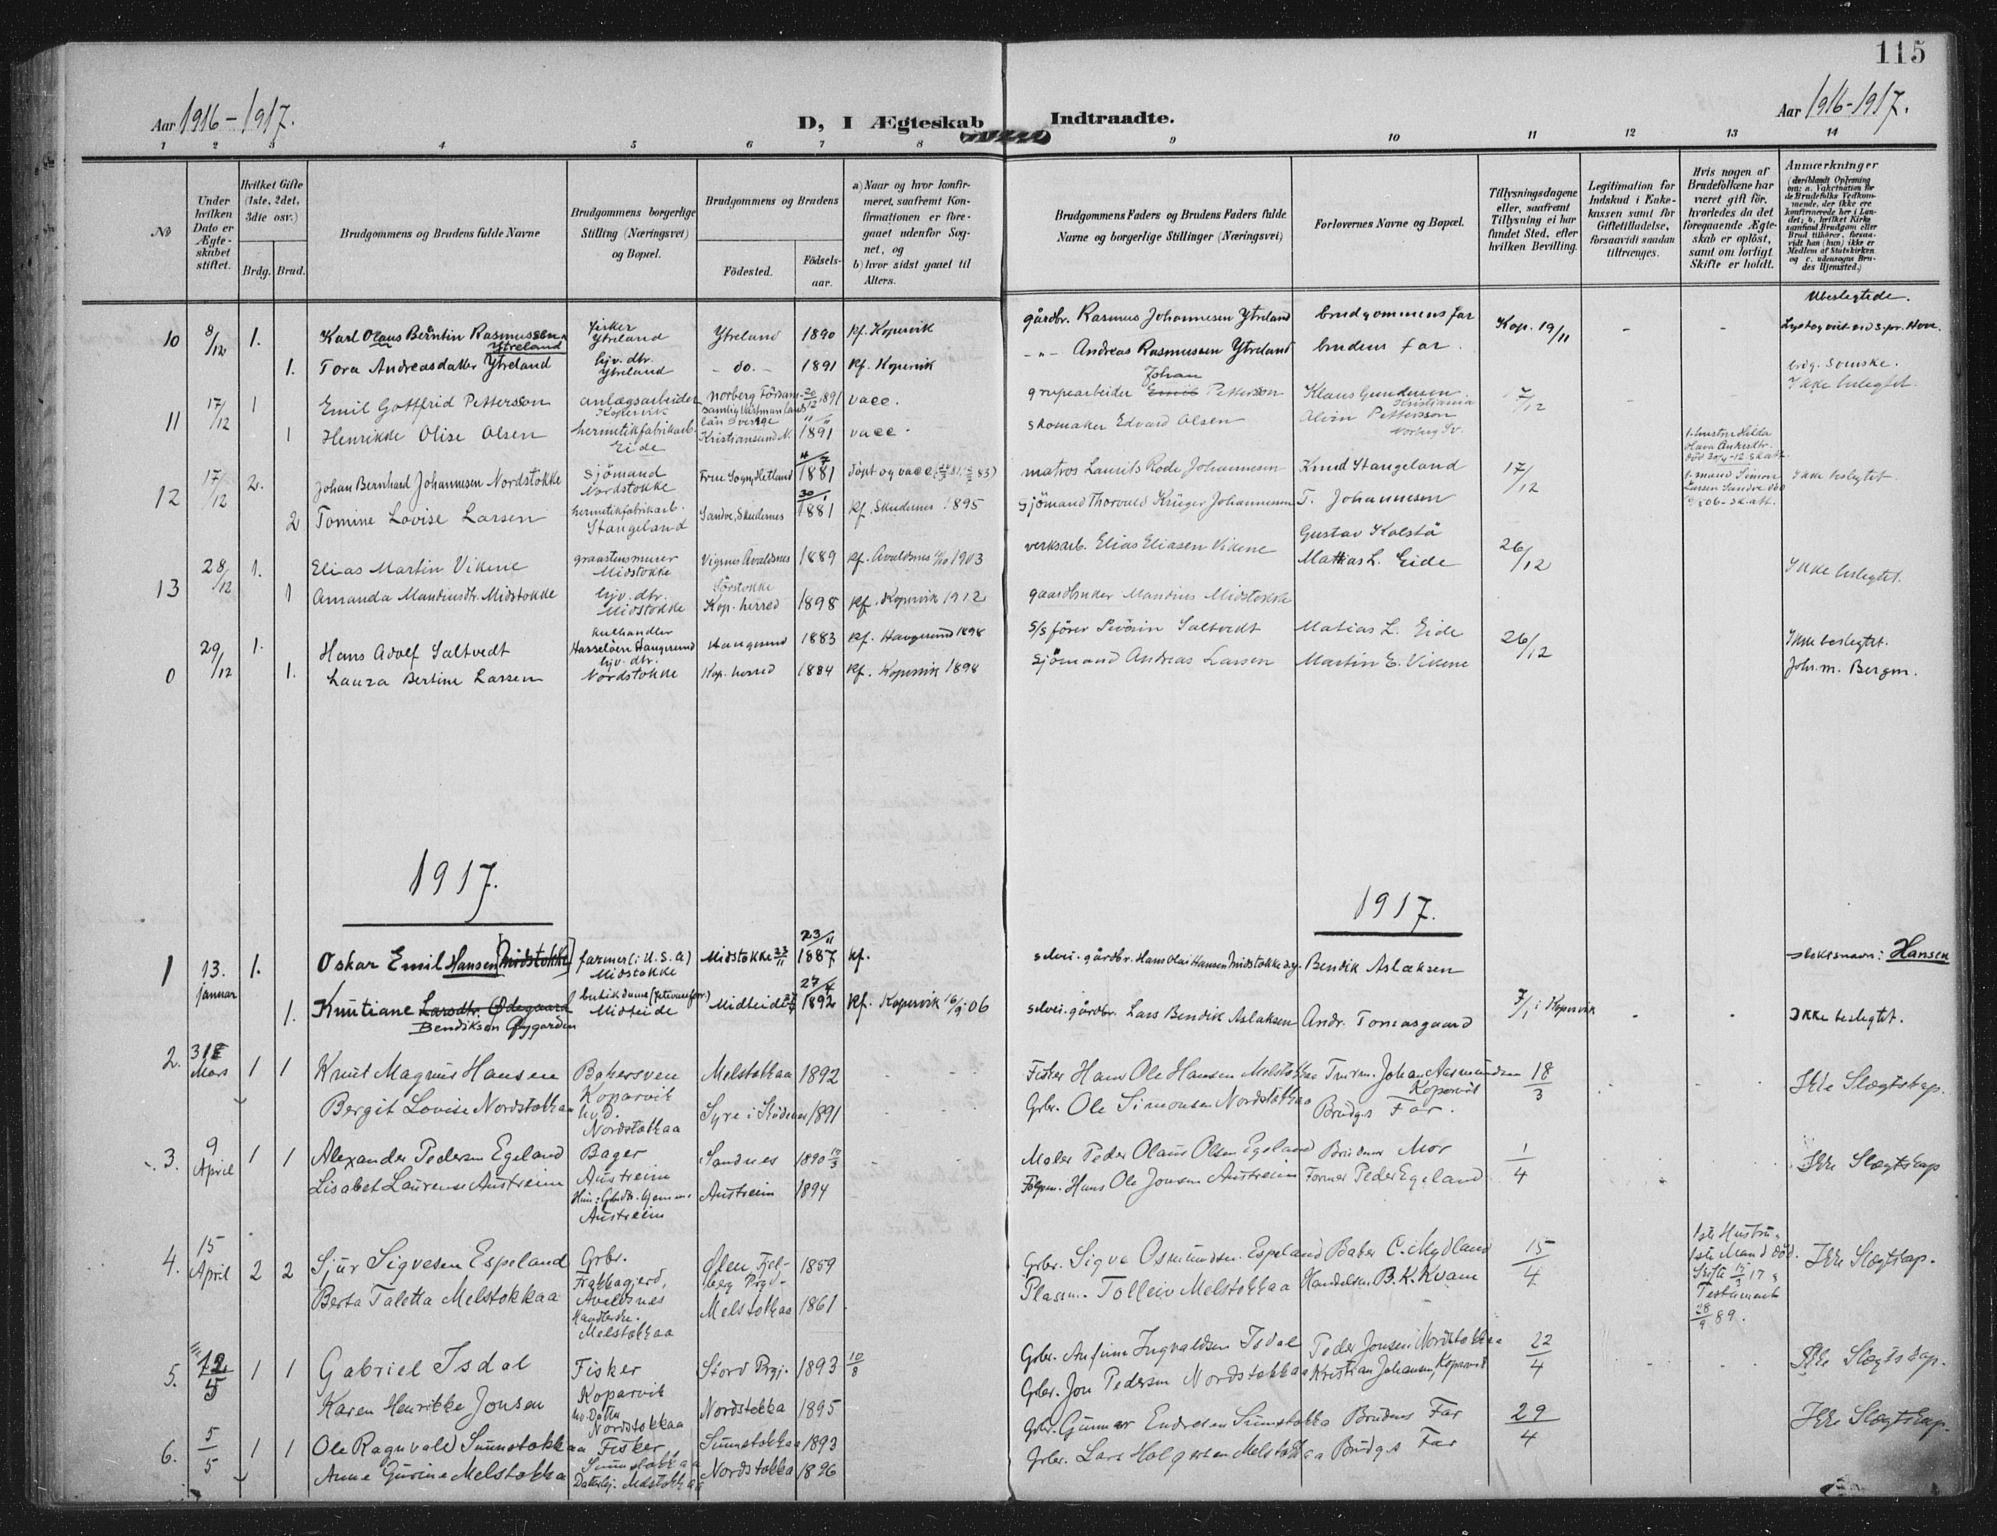 115
Aar 1916-1917.
D, I Ægteskab Indtraadte.
Aar 1916-1917.
1 2 3 4 5 6 7 8 9 10 11 12 13 14
No
Under hvilken Dato er Ægteskabet stiftet.
Hvilket Gifte (1ste, 2det, 3die osv.)
Brdg. Brud.
Brudgommens og Brudens fulde Navne
Brudgommens borgerlige Stilling (Næringsvei) og Bopæl.
Brudgommens og Brudens
Födested.
Födselsaar.
a) Naar og hvor konfirmeret, saafremt Konfirmationen er foregaaet udenfor Sognet, og
b) hvor sidst gaaet til Alters.
Brudgommens Faders og Brudens Faders fulde Navne og borgerlige Stillinger (Næringsvei)
Forlovernes Navne og Bopæl.
Tillysningsdagene eller, saafremt Tillysning ei har fundet Sted, efter hvilken Bevilling.
Legitimation for Indskud i Enkekassen samt for Giftetilladelse, forsaavidt saadan tiltrænges.
Hvis nogen af Brudefolkene har været gift för, hvorledes da det foregaaende Ægteskab er oplöst, samt om lovligt Skifte er holdt.
Anmærkninger
(deriblandt Oplysning om: a. Vakcination for de Brudefolks Vedkommende, der ikke ere konfirmerede her i Landet; b. hvilket Kirkesamfund Brudgom eller Brud tilhörer, forsaavidt han (hun) ikke er Medlem af Statskirken og c. udensogns Brudes Hjemsted.)
10 8/12 1. Karl Olaus Berntin Rasmussen Ytreland fisker Ytreland Ytreland 1890 kf. Kopervik gårdbr. Rasmus Johannesen Ytreland brudgommens far Kop. 19/11 - - Ubeslegtede.
1. Tora Andreasdatter Ytreland hjv. dtr. Ytreland - do. - 1891 kf. Kopervik - " - Andreas Rasmussen Ytreland brudens far.
11 17/12 1 Emil Gottfrid Pettersson anlægsarbeider Kopervik Norberg Sverige 20/12 1891 vacc. grupearbeider Johan Emil Pettersson Klaus Gundersen Kristiania 17/12 brdg. Svenske. Ikke beslegtet.
1 Henrikke Olise Olsen hermetikfabrikarb. Eide Kristiansund N. 1891 vacc. skomaker Edvard Olsen Alvin Pettersson Norberg Sv.
12 17/12 2. Johan Bernhard Johannesen Nordstokke sjömand Nordstokke 4/7 1881 döpt og vacc matros Laurits Rode Johannesen Knud Stangeland 17/12 Ikke beslegtet.
2 Tomine Lovise Larsen hermetikfabrikarb. Stangeland Sandve, Skudenes 30/1 1881 kf. Skudenes 1895 sjömand Thorvald Krüger Johannesen T. Johannesen
13 28/12 1. Elias Martin Vikene graastensmurer Midstokke Vignes Avaldsnes 1889 kf. Avaldsnes 1903 verksarb. Elias Eliasen Vikene Gustav Kolstö 26/12 Ikke beslegtet.
1 Amanda Mandiusdtr. Midstokke hjv. dtr. Midstokke Sörstokke Kop. herred 1898 kf. Kopervik 1912 gaardbruker Mandius Midstokke Mathias L. Eide
0 29/12 1. Hans Adolf Saltvedt kulhandler Hasseløen Haugesund Haugesund 1883 kf. Haugesund 1898 S/S fører Sivörin Saltvedt Matias L. Eide 26/12 Ikke beslegtet.
1. Laura Bertine Larsen hjv. dtr. Nordstokke Kop. herred 1884 kf. Kopervik 1898 sjömand Andreas Larsen Martin E. Vikene Joh. m. Bergm.
1917. 1917.
1 13. januar 1. Oskar Emil Hansen Midstokke farmer (i U.S.A) Midstokke Midstokke 23/11 23/11 1887 kf. selvei. gårdbr. Hans Olai Hansen Midstokke Bendik Aslaksen slektsnavn: Hansen
1. Knutiane Larsdtr. Ødegaard Bendiksen Øygarden butikdame Midteide Midteide 27/4 1892 kf. Kopervik 16/9 06 selvei. gårdbr. Lars Bendik Aslaksen Andr. Tomasgaard 7/1 i Kopervik Ikke beslegtet.
2. 31 Mars 1 1 Knut Magnus Hansen Bakersven Koparvik Melstokkaa 1892 Fisker Hans Ole Hansen Melstokkaa Johan Aasmundsen Koparvik 18/3 Ikke Slægtskap.
Bergit Lovise Nordstokkaa hvd. Nordstokkaa Syre i Skudenes 1891 Grbr. Ole Simonsen Nordstokkaa Brudg.s Far.
3. 9 April 1 1 Alexander Pedersen Egeland Bager Austreim Sandnes 1890 19/3 Maler Peder Olaus Olsen Egeland Brudens Mor 1/4 Ikke Slægtskap
Lisabet Laurense Austreim Austreim Austreim 1894 Hans Ole Jonsen Austreim Former Peder Egeland
4. 15 April 2 2 Sjur Sigvesen Espeland Grbr. Avaldsnes Ølen Fjelberg Prgd. 1859 Grbr. Sigve Osmundsen Espeland Baker C. Mydland 15/4 1ste Hustru, 1ste Mand död. Skifte 15/3 17, Testamente 28/9 89. Ikke Slægtskap.
Berta Taletta Melstokkaa Handlerske. Melstokkaa Melstokkaa 1861 Plasm. Tolleiv Melstokkaa Handelsm. B. K. Kvam
5. 12/5 1 1 Gabriel Isdal Fisker Koparvik Stord Prgj. 1893 10/8 Grbr. Anfinn Ingvaldsen Isdal Peder Jonsen Nordstokkaa 22/4 Ikke Slægtskap.
Karen Henrikke Jonsen Nordstokkaa Nordstokka 1895 Grbr. Jon Pedersen Nordstokkaa Kristian Johansen, Koparvik
6. 5/5 1 1 Ole Ragnvald Sunnstokkaa Fisker Sunnstokkaa Sunnstokka 1893 Grbr. Gunnar Endresen Sunnstokka Brudens Far 29/4 Ikke Slægtskap.
Anne Gurine Melstokka Datter hj. Melstokkaa Nordstokka 1896 Grbr. Lars Holgersen Melstokkaa Brudg.s Far